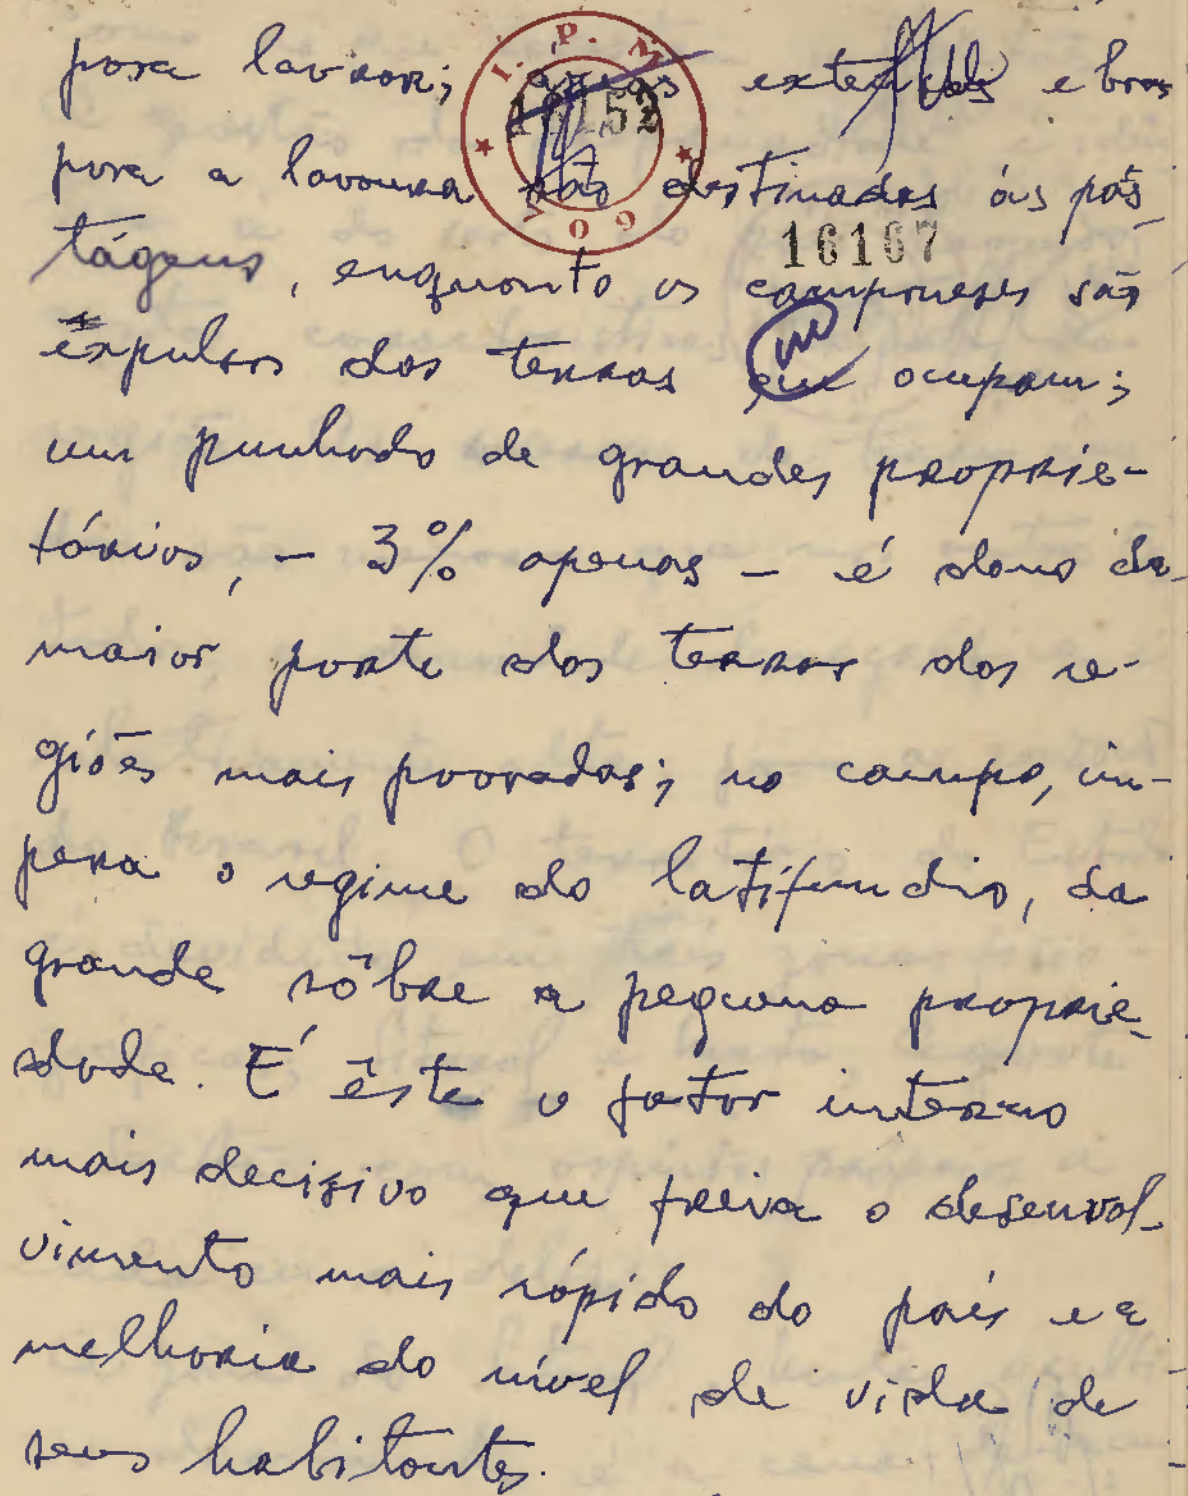 para lavrar; áreas extensas e boas
para a lavoura são destinadas às pas-
tágens, enquanto os camponeses são
expulsos das terras que ocupam;
um punhado de grandes proprie-
tários, - 3% apenas - é dono da
maior parte das terras das re-
giões mais povoadas; no campo, im-
pera o regime do latifundio, da
grande sôbre a pequena proprie-
dade. É êste o fator interno
mais decisivo que freia o desenvol-
vimento mais rápido do país e a
melhoria do nível de vida de
seus habitantes.
I. P. M
709
16152
16167